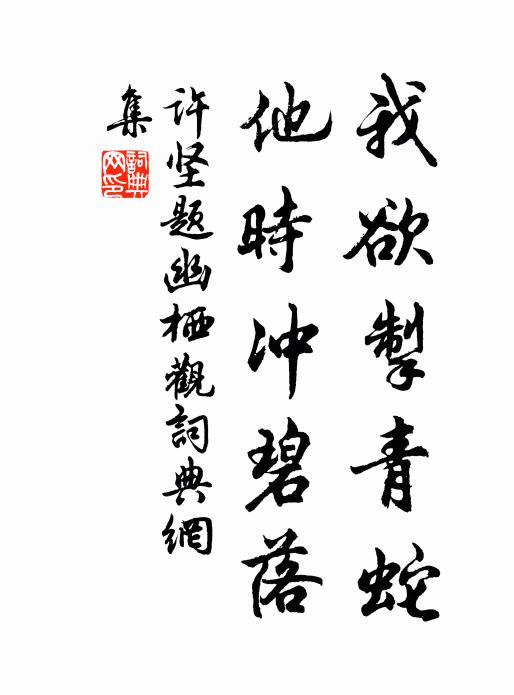 我欲掣青蛇
他時冲碧落
许坚题幽栖觀詞典網
集
詞典
网印